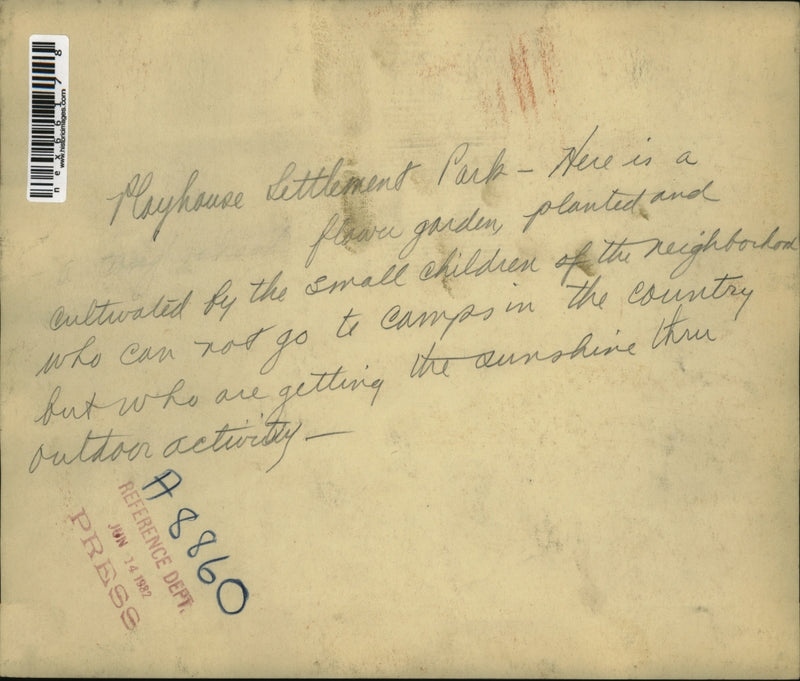 nex66178
www.historicimages.com
Playhouse Settlement Park - Here is a
flower garden, planted and
cultivated by the small children of the neighborhood
who can not go to camps in the country
but who are getting the sunshine thru
outdoor activity -
A8860
REFERENCE DEPT.
JUN 14 1982
PRESS